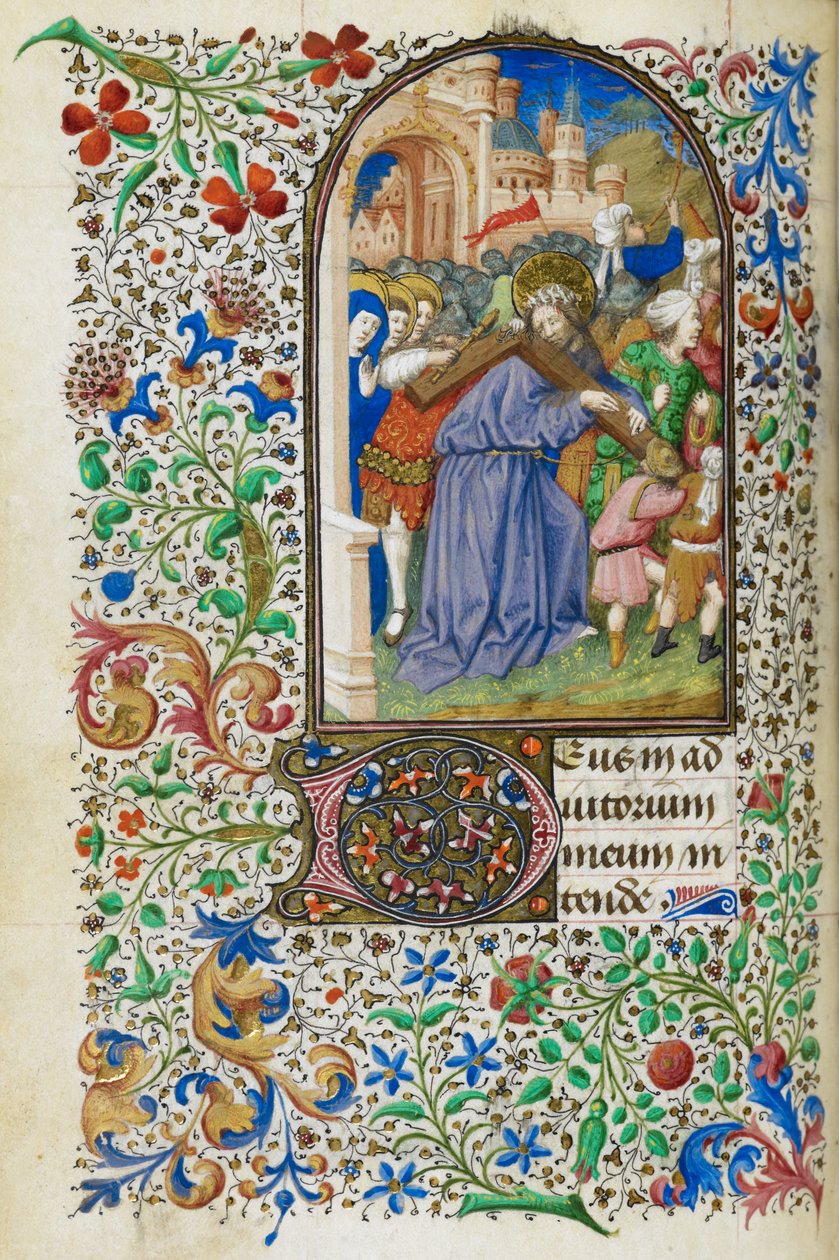 DEus in ad
iutorium
meum in
tende.